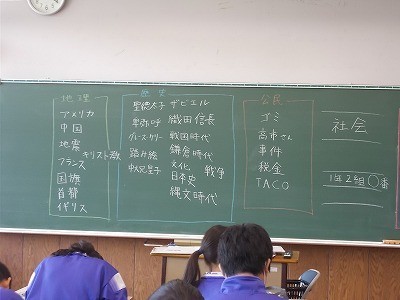 地理
アメリカ
中国
地震
キリスト教
フランス
国旗
首都
イギリス
歴史
聖徳太子
卑弥呼
グレース・ケリー
踏み絵
ザビエル
織田信長
戦国時代
鎌倉時代
文化、戦争
日本史
縄文時代
公民
ゴミ
高市さん
事件
税金
TACO
社会
1年2組〇番